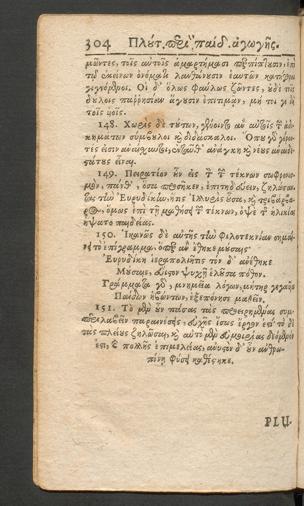 304 Πλύτ. περὶ παίδ. ἀγωγῆς.
μῶντες, τοῖς αὐτοῖς ἁμαρτήμασι περιπίπτωσιν, ἐπὶ
τῷ ἐκείνων ὀνόματι λανθάνωσιν ἑαυτῶν κατήγοροι
γιγνόμενοι. Οἱ δ' ὅλως φαύλως ζῶντες, ὐδὲ τοῖς
δύλοις παῤῥησίαν ἄγυσιν ἐπιτιμᾶν, μή τι γε
τοῖς υἱοῖς.
148. Χωρὶς δὲ τύτων, γένοιντο ἂν αὐτοῖς τ ἀδι-
κημάτων σύμβυλοι κ διδάσκαλοι. Ὅπυ γὸ γέρον-
τές εἰσιν ἀναίσχυντοι, ἐνταῦθ' ἀνάγκη κ νέυς ἀναιδε-
στάτυς εἶναι.
149. Πειρατέον ὖν εἰς τ τ τέκνων σωφρονισ-
μὸν, πάνθ', ὅσα προσήκεν, ἐπιτηδεύειν, ζηλώσαν-
τας τὴν Εὐρυδίκην, ἥτις Ἰλλυρὶς ὖσα, κ τριβάρβα-
ρος, ὅμως ἐπὶ τῇ μαθήσει τ τέκνων, ὀψὲ τ ἡλικίας
ἥψατο παιδείας.
150. Ἱκανῶς δὲ αὐτῆς τὴν Φιλοτεκνίαν σημαί-
νει τὸ ἐπίγραμμα, ὅπερ ἀνέθηκε μύσαις
Εὐρυδίκη ἱεραπολιῆτις τόν δ' ἀνέθηκε
Μύσαις, εὔιςον ψυχῇ ἑλῦσα πόθον.
Γράμματα γὸ, μνημεῖα λόγων, μήτηρ γεγαυῖα
Παίδων ἡβώντων, ἐξεπόνησε μαθεῖν.
151. Τὸ μὲν ὖν πάσας τὰς προειρημένας συμ-
περιλαβεῖν παραινέσης, εὐχῆς ἴσως ἔργον ἐςί· τὸ δὲ
τὰς πλείυς ζηλῶσαι, κ αὐτὸ μὲν εὐμοιρίας δεόμενόν
ἐςι, κ πολλῆς ἐπιμελείας, ἀνυςὸν δ' ὖν ἀνθρω-
πίνῃ φύσῃ καθέςηκε.
PLU.